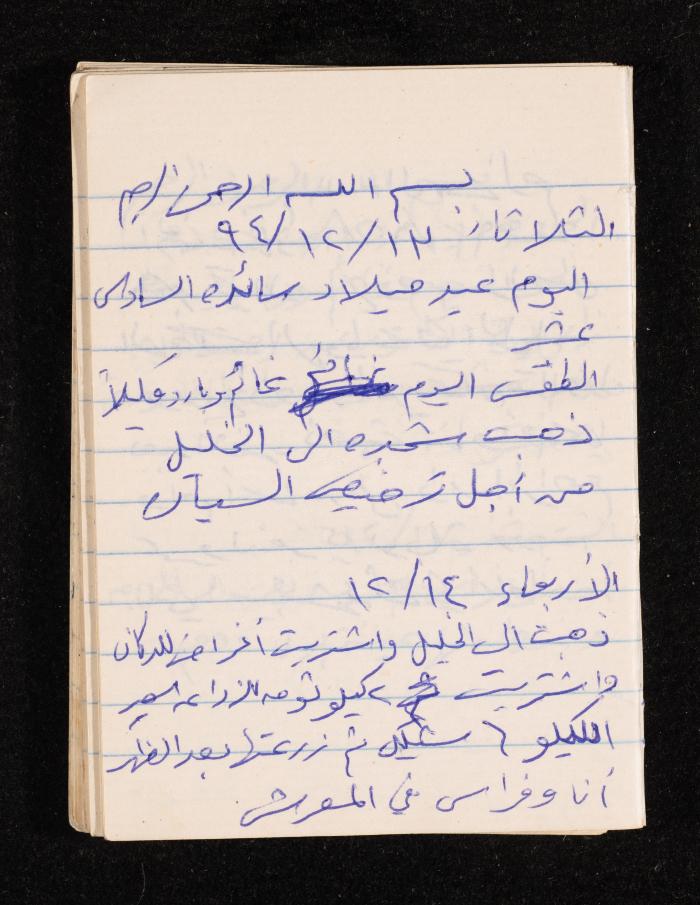 بسم الله الرحمن الرحيم
الثلاثاء ٩٤/١٢/١٣
اليوم عيد ميلاد سائده السادس
عشر
الطقس اليوم غائم وبارد قليلاً
ذهب شحده الى الخليل
من أجل ترخيص السياره
الأربعاء ١٢/١٤
ذهبت الى الخليل واشتريت أغراض للدكان
واشتريت ٢ كيلو ثومه للزراعه سعر
الكيلو ٦ شيكل ثم زرعتها بعد الظهر
أنا وفراس في المعرش